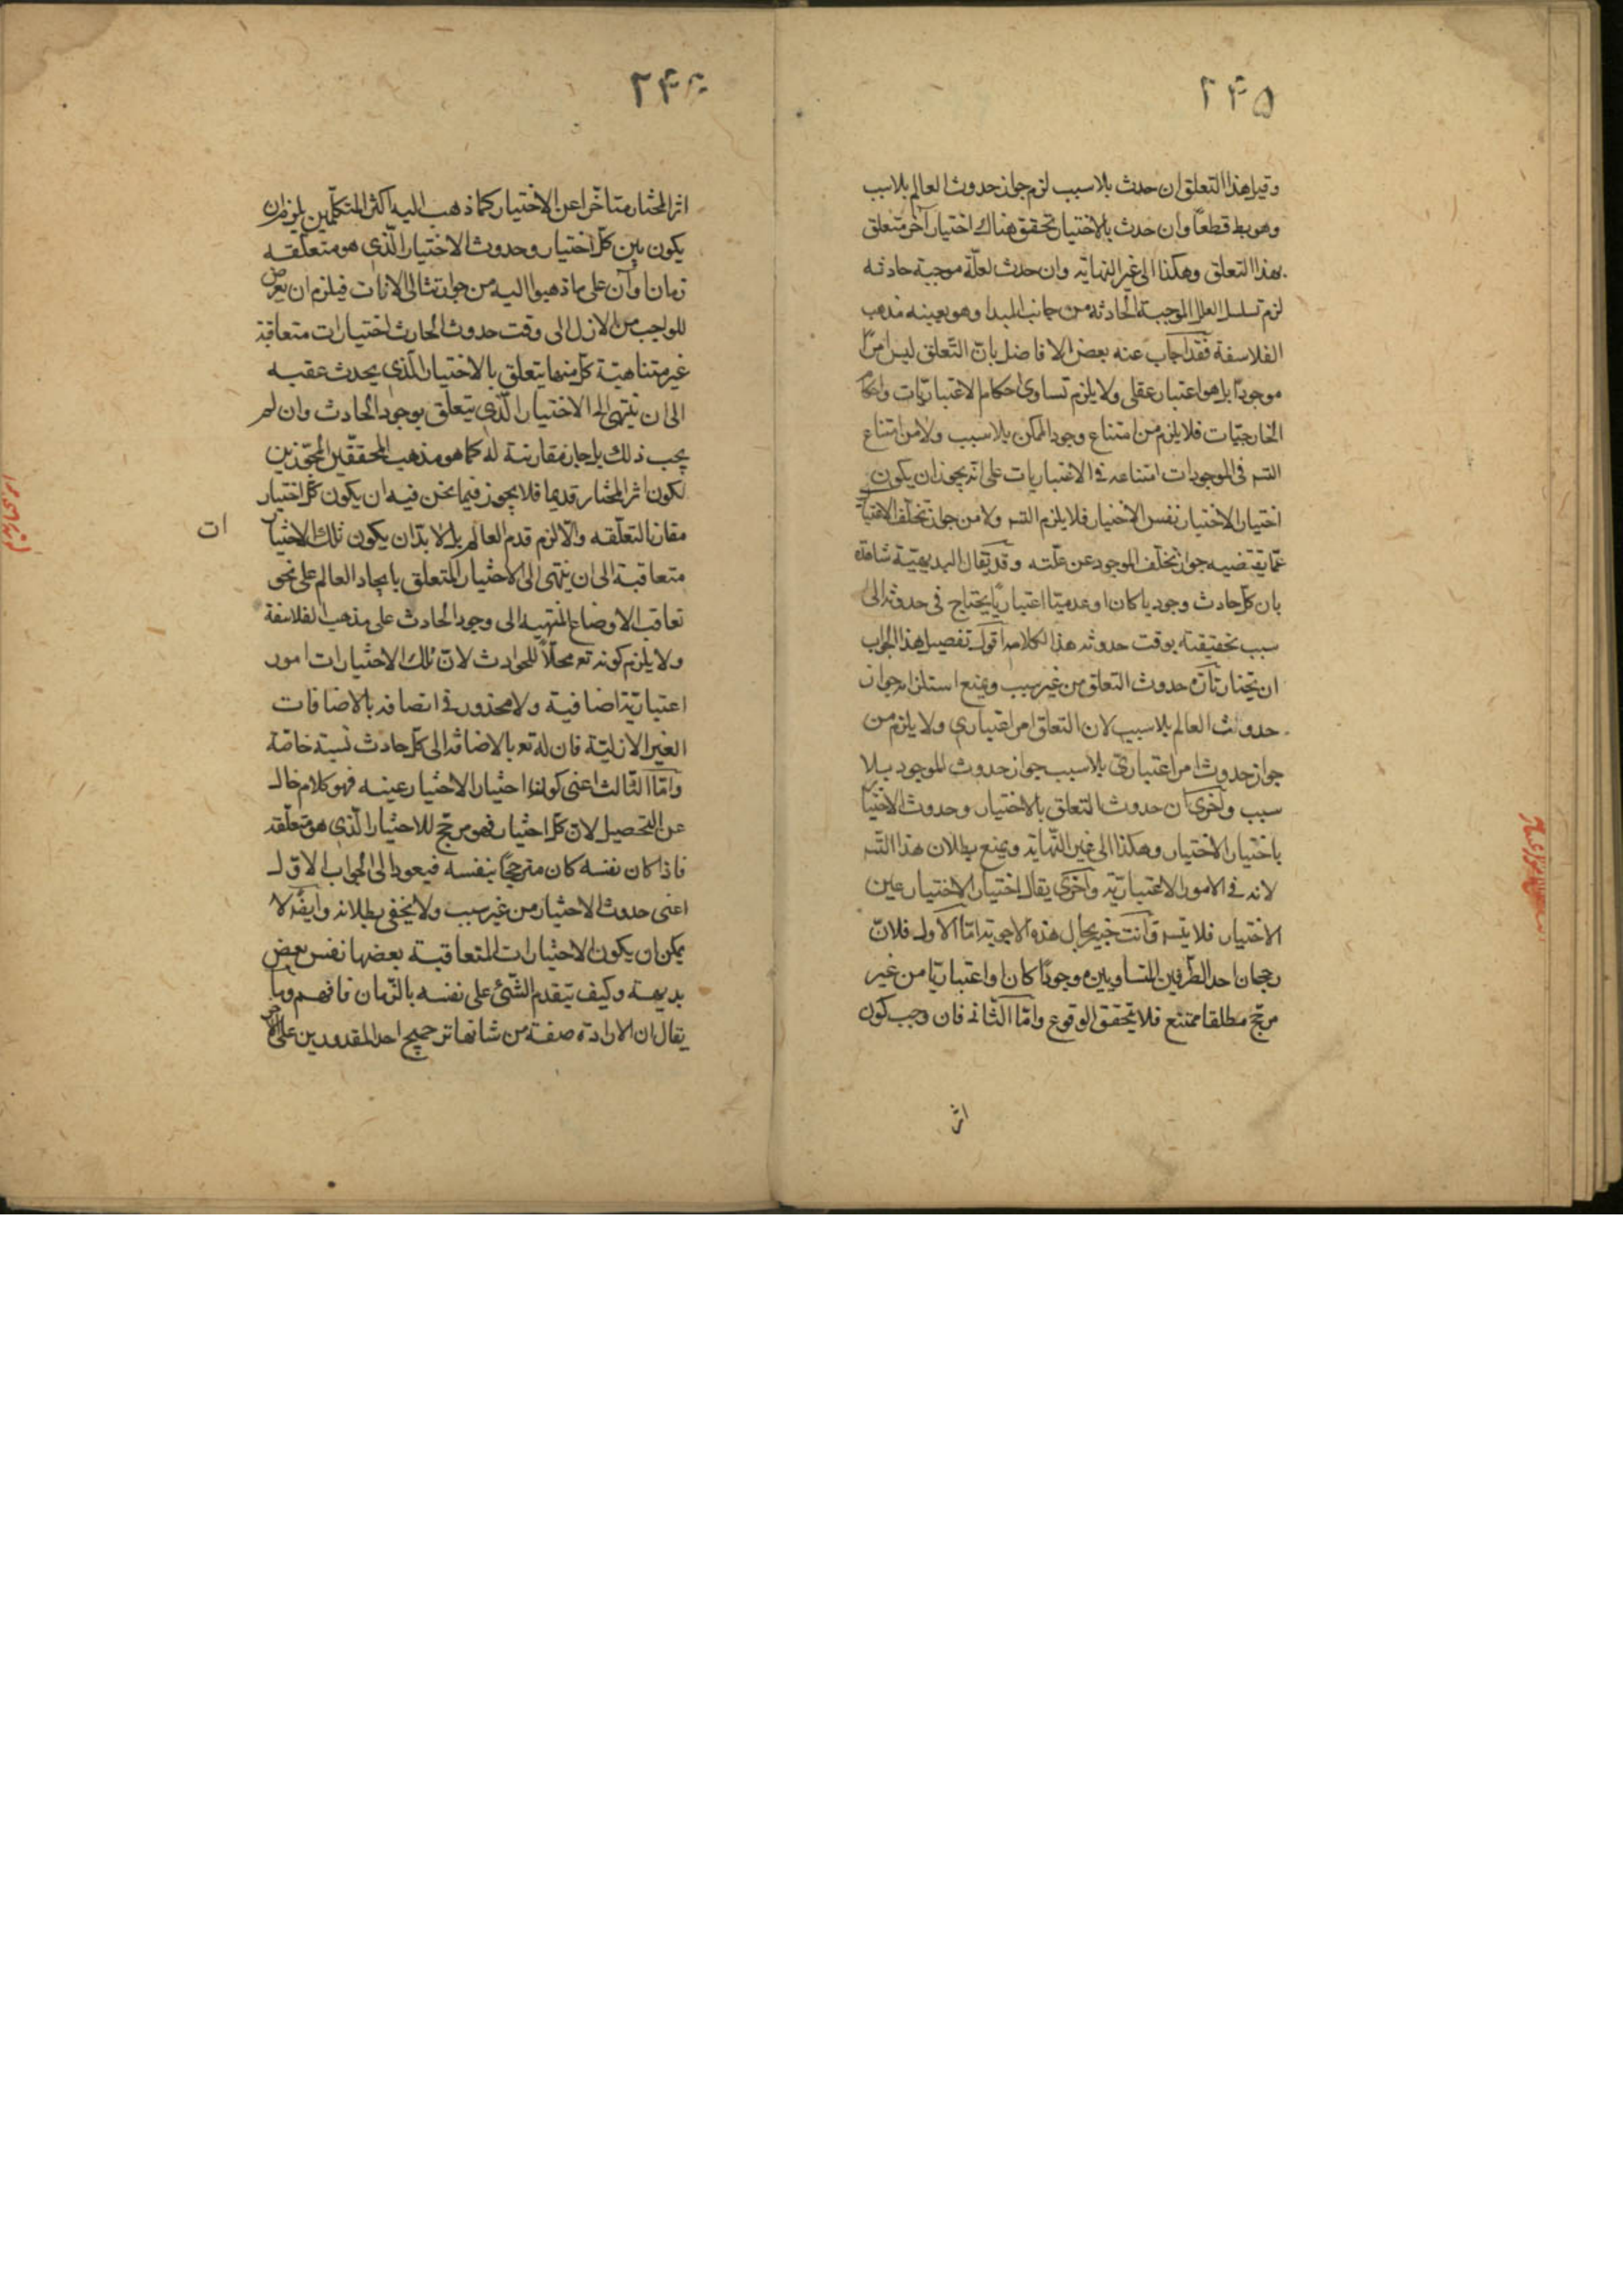 ٢۴۵
وقيل هذا التعلق ان حدث بلا سبب لزم جواز حدوث العالم بلا سبب
وهو بط قطعًا وان حدث بالاختيار تحقق هناك اختيار آخر متعلق
بهذا التعلق وهكذا الى غير النهاية وان حدث لعلّة موجبة حادثه
لزم تسلسل العلل الموجبة الحادثة من جانب المبدا وهو بعينه مذهب
الفلاسفة فقد اجاب عنه بعض الافاضل بانّ التّعلق ليس امرًا
موجودًا بل هو اعتبار عقلى ولا يلزم تساوى احكام الاعتباريّات واحكام
الخارجيّات فلا يلزم من امتناع وجود الممكن بلا سبب ولا من امتناع
التسـ فى الموجودات امتناعه فى الاعتباريات على انه يجوز ان يكون
اختيار الاختيار نفس الاختيار فلا يلزم التسـ ولا من جواز تخلّف الاختيار
عمّا يقتضيه جواز تخلّف الموجود عن علّته وقد يقال البديهيّة شاهدة
بان كلّ حادث وجوديا كان او عدميّا اعتباريًا يحتاج فى حدوثه الى
سبب تخقيقته بوقت حدوثه هذا كلامه اقول تفصيل هذا الجواب
ان يختار تارّة حدوث التعلق من غير سبب ويمنع استلزامه جواز
حدوث العالم بلا سبب لان التعلق امر اعتبارى ولا يلزم من
جواز حدوث امر اعتبارىّ بلا سبب جواز حدوث الموجود بلا
سبب واخرى ان حدوث التعلق بالاختيار وحدوث الاختيار
باختيار الاختيار وهكذا الى غير النّهاية ويمنع بطلان هذا التسـ
لانه فى الامور الاعتباريّة واخرى يقال اختيار الاختيار عين
الاختيار فلا يتسـ وانت خبير بحال هذه الاجوبة امّا الاول فلانّ
رجحان احد الطّرفين المتساويين موجودًا كان او اعتباريّا من غير
مرجّح مطلقا ممتنع فلا يتحقق الوقوع وامّا الثّانى فان وجب كون
اثر
٢۴۶
اثر المختار متاخّرا عن الاختيار كما ذهب اليه اكثر المتكلّمين يلزم ان
يكون بين كلّ اختيار وحدوث الاختيار الّذى هو متعلّقه
زمان او آن على ما ذهبوا اليه من جواز تتالى الآنات فيلزم ان يعرض
للواجب من الازل الى وقت حدوث الحادث اختيارات متعاقبة
غير متناهيّة كلّ منها يتعلق بالاختيار الّذى يحدث عقبه
الى ان ينتهى الى الاختيار الّذى يتعلّق بوجود الحادث وان لم
يجب ذلك بل جاز مقارنته له كما هو مذهب المحققّين المجوّزين
لكون اثر المختار قديما فلا يجوز فيما نحن فيه ان يكون كلّ اختيار
مقارنا لتعلّقه والّا لزم قدم العالم بل لا بدّ ان يكون تلك الاختيار
ات
متعاقبة الى ان ينتهى الى الاختيار المتعلق بايجاد العالم على نحو
تعاقب الاوضاع المنتهية الى وجود الحادث على مذهب الفلاسفة
ولا يلزم كونه تع محلّاً للحوادث لانّ تلك الاختيارات امور
اعتباريّة اضافية ولا محذور فى اتصافه بالاضافات
الغير الازليّة فان له تع بالاضافة الى كلّ حادث نسبة خاصّة
وامّا الثّالث اعنى كون اختيار الاختيار عينه فهو كلام خال
عن التحصيل لانّ كلّ اختيار فهو مرجّح للاختيار الّذى هو متعلّقه
فاذا كان نفسه كان مترجحًا بنفسه فيعود الى الجواب الاول
اعنى حدوث الاختيار من غير سبب ولا يخفى بطلانه وايضًا لا
يمكن ان يكون الاختيارات المتعاقبة بعضها نفس بعض
بديهة وكيف يتقدم الشّئ على نفسه بالزّمان فافهم وما
يقال ان الارادة صفة من شانها ترجيح احد المقدورين على الآخر